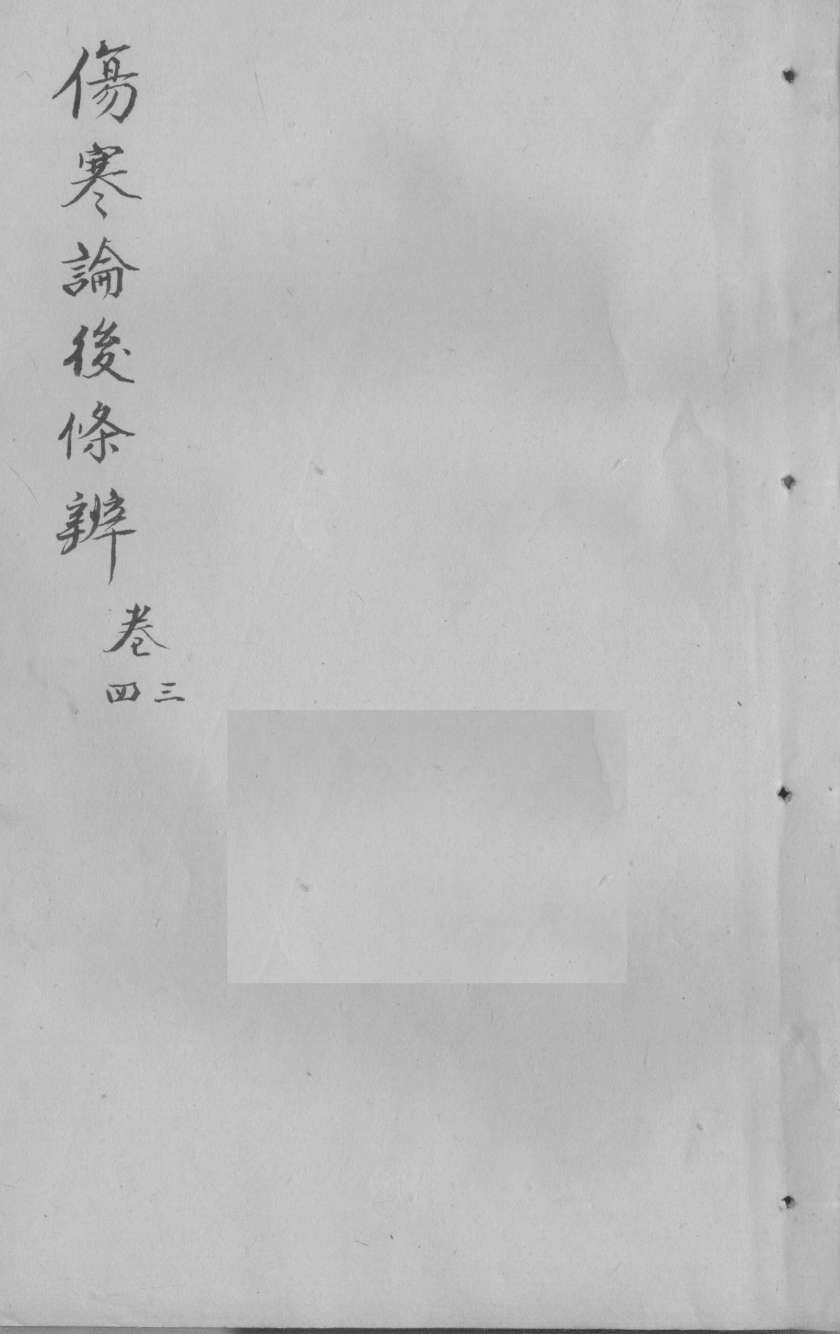 傷寒論後條辨
卷
三
四